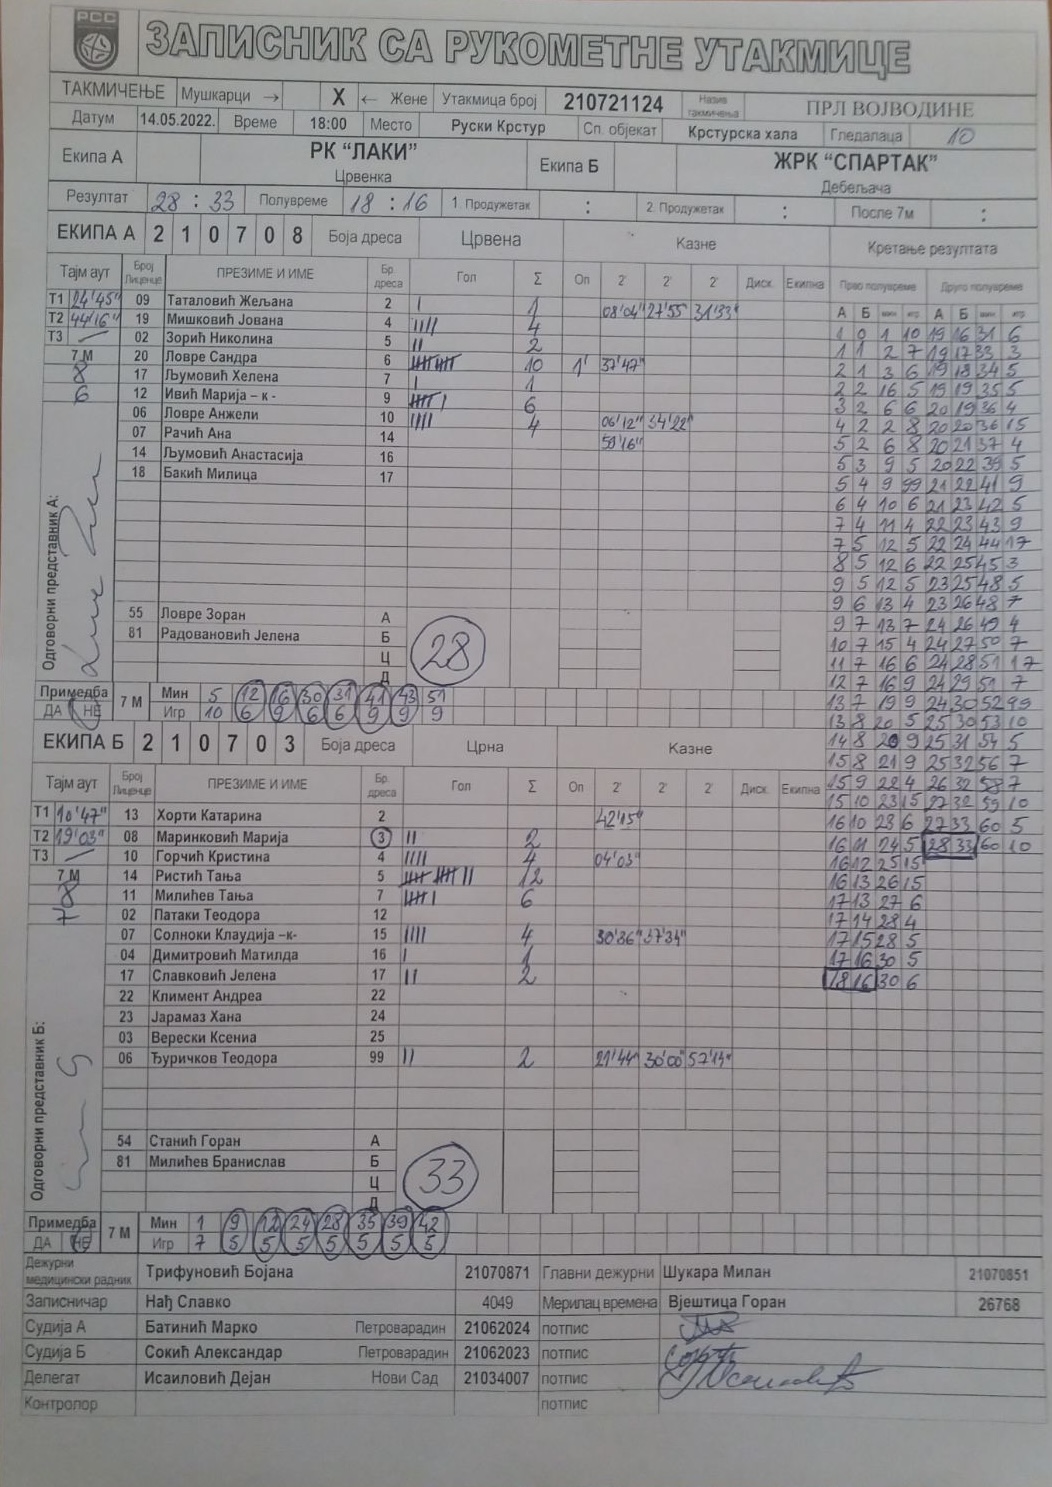 РСС
ЗАПИСНИК СА РУКОМЕТНЕ УТАКМИЦЕ
ТАКМИЧЕЊЕ Мушкарци → X ← Жене Утакмица број 210721124 Назив такмичења ПРЛ ВОЈВОДИНЕ
Датум 14.05.2022. Време 18:00 Место Руски Крстур Сп. објекат Крстурска хала Гледалаца 10
Екипа А РК "ЛАКИ" Црвенка Екипа Б ЖРК "СПАРТАК" Дебељача
Резултат 28 : 33 Полувреме 18 : 16 1. Продужетак : 2. Продужетак : После 7м :
ЕКИПА А 2 1 0 7 0 8 Боја дреса Црвена Казне Кретање резултата
Тајм аут Број Лиценце ПРЕЗИМЕ И ИМЕ Бр. дреса Гол Σ Оп 2' 2' 2' Диск. Екипна Прво полувреме Друго полувреме
А Б мин игр А Б мин игр
Т1 24'45" 09 Таталовић Жељана 2 I 1 08'04" 27'55 31'33"
Т2 44'16" 19 Мишковић Јована 4 IIII 4
Т3 — 02 Зорић Николина 5 II 2
7 М 20 Ловре Сандра 6 10 1' 37'47"
8 17 Љумовић Хелена 7 I 1
6 12 Ивић Марија – к - 9 6
06 Ловре Анжели 10 IIII 4 06'12" 34'22"
07 Рачић Ана 14 59'16"
14 Љумовић Анастасија 16
18 Бакић Милица 17
55 Ловре Зоран А
81 Радовановић Јелена Б
Ц
Д
28
Одговорни представник А:
Примедба ДА НЕ
7 М Мин 5 12 16 30 31 41 43 51
Игр 10 6 9 6 6 9 9 9
1 0 1 10 19 16 31 6
1 1 2 7 19 17 33 3
2 1 3 6 19 18 34 5
2 2 16 5 19 19 35 5
3 2 6 6 20 19 36 4
4 2 2 8 20 20 36 15
5 2 6 8 20 21 37 4
5 3 9 5 20 22 39 5
5 4 9 99 21 22 41 9
6 4 10 6 21 23 42 5
7 4 11 4 22 23 43 9
7 5 12 5 22 24 44 17
8 5 12 6 22 25 45 3
9 5 12 5 23 25 48 5
9 6 13 4 23 26 48 7
9 7 13 7 24 26 49 4
10 7 15 4 24 27 50 7
11 7 16 6 24 28 51 17
12 7 16 9 24 29 51 7
13 7 19 9 24 30 52 99
13 8 20 5 25 30 53 10
14 8 20 9 25 31 54 5
15 8 21 9 25 32 56 7
15 9 22 4 26 32 58 7
15 10 23 15 27 32 59 10
16 10 23 6 27 33 60 5
16 11 24 5 28 33 60 10
16 12 25 15
16 13 26 15
17 13 27 6
17 14 28 4
17 15 28 5
17 16 30 5
18 16 30 6
ЕКИПА Б 2 1 0 7 0 3 Боја дреса Црна Казне
Тајм аут Број Лиценце ПРЕЗИМЕ И ИМЕ Бр. дреса Гол Σ Оп 2' 2' 2' Диск. Екипна
Т1 10'47" 13 Хорти Катарина 2 42'15"
Т2 19'03" 08 Маринковић Марија 3 II 2
Т3 — 10 Горчић Кристина 4 IIII 4 04'03"
7 М 14 Ристић Тања 5 12
8 11 Милићев Тања 7 6
7 02 Патаки Теодора 12
07 Солноки Клаудија –к- 15 IIII 4 30'36" 37'34"
04 Димитровић Матилда 16 I 1
17 Славковић Јелена 17 II 2
22 Климент Андреа 22
23 Јарамаз Хана 24
03 Верески Ксениа 25
06 Ђуричков Теодора 99 II 2 21'44" 30'00" 57'14"
54 Станић Горан А
81 Милићев Бранислав Б
Ц
Д
33
Одговорни представник Б:
Примедба ДА НЕ
7 М Мин 1 9 12 24 28 35 39 42
Игр 7 5 5 5 5 5 5 5
Дежурни медицински радник Трифуновић Бојана 21070871 Главни дежурни Шукара Милан 21070851
Записничар Нађ Славко 4049 Мерилац времена Вјештица Горан 26768
Судија А Батинић Марко Петроварадин 21062024 потпис
Судија Б Сокић Александар Петроварадин 21062023 потпис
Делегат Исаиловић Дејан Нови Сад 21034007 потпис
Контролор потпис